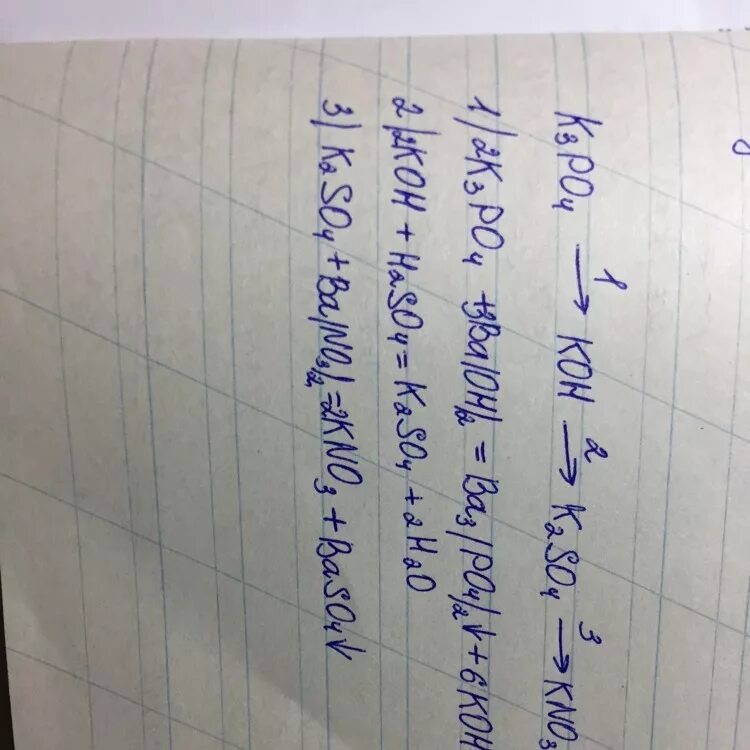 K₃PO₄ →¹ KOH →² K₂SO₄ →³ KNO₃
1) 2K₃PO₄ + 3Ba(OH)₂ = Ba₃(PO₄)₂↓ + 6KOH
2) 2KOH + H₂SO₄ = K₂SO₄ + 2H₂O
3) K₂SO₄ + Ba(NO₃)₂ = 2KNO₃ + BaSO₄↓